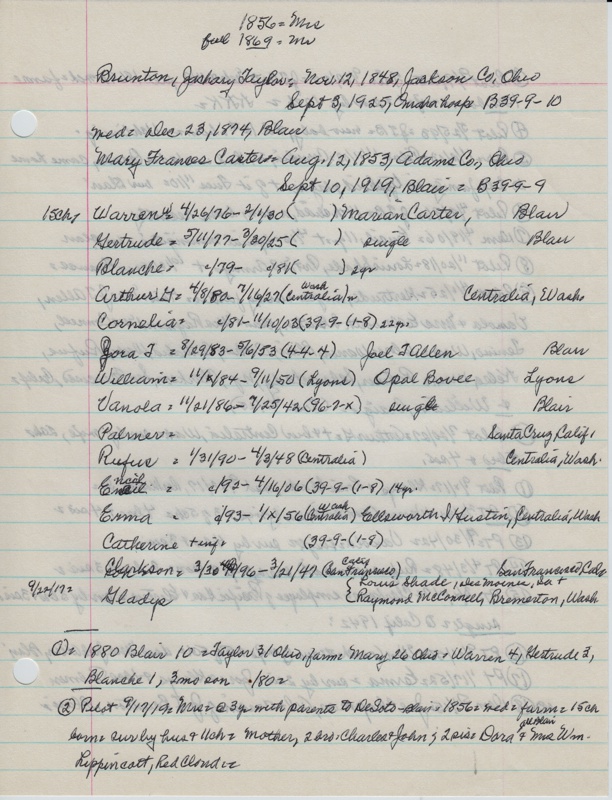 1856 = Mrs
fall 1869 = Mr
Brunton, Zachary Taylor = Nov. 12, 1848, Jackson Co, Ohio
Sept 3, 1925, Omaha hosp B39-9-10
med = Dec 23, 1874, Blair
Mary Frances Carter = Aug. 12, 1853, Adams Co, Ohio
Sept 10, 1919, Blair = B39-9-9
15ch, Warren = 4/26/76 - 2/1/30 ( ) Marian Carter, Blair
Gertrude = 5/11/77 - 3/20/25 ( ) single Blair
Blanche = c/79 - c/81 ( ) 2yr
Arthur G = 4/8/80 - 7/16/27 (Centralia) Wash Centralia, Wash
Cornelia = c/81 - 11/10/03 (39-9-(1-8) 22yr.
Zora T = 8/29/83 - 5/6/53 (4-4-4) Joel T Allen Blair
William = 11/x/84 - 9/11/50 (Lyons) Opal Bovee Lyons
Vanola = 11/21/86 - 7/25/42 (96-7-x) single Blair
Palmer = Santa Cruz, Calif.
Rufus = 1/31/90 - 4/3/48 (Centralia) Centralia, Wash.
Enail = c/92 - 4/16/06 (39-9-(1-8) 14yr.
Emma = c/93 - 1/x/56 (Centralia) Wash Ellsworth J Hustin, Centralia, Wash
Catherine + inf = (39-9-(1-8)
Clarkson = 3/30/96 - 3/21/47 (San Francisco) Calif San Francisco, Calif
9/22/17 = Gladys { Louis Shade, Des Moines, Ia +
{ Raymond McConnell, Bremerton, Wash
① = 1880 Blair 10 = Taylor 31 Ohio, farm = Mary 26 Ohio + Warren 4, Gertrude 3,
Blanche 1, 3mo son · /80 =
② Pilot 9/17/19 = Mrs = @ 3yr with parents to DeSoto - Blair = 1856 = med = farm = 15ch
born = sur by hus + 11ch = Mother, 2 bro: Charles + John; 2 sis = Dora all Blair + Mrs Wm.
Lippincott, Red Cloud =